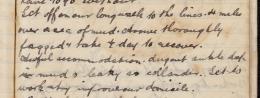 have to go without
Set off on our long walk to the lines. 4 miles
over a sea of mud. Arrive thoroughly
fagged & take ½ day to recover.
Awful accommodation. dugout ankle deep
in mud & leaky as collander. Set to
work at improve our domicile.